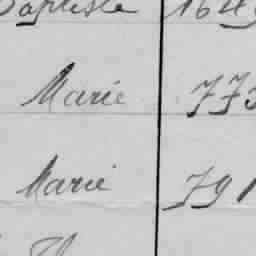 Baptiste 164
Marie 773
Marie 791